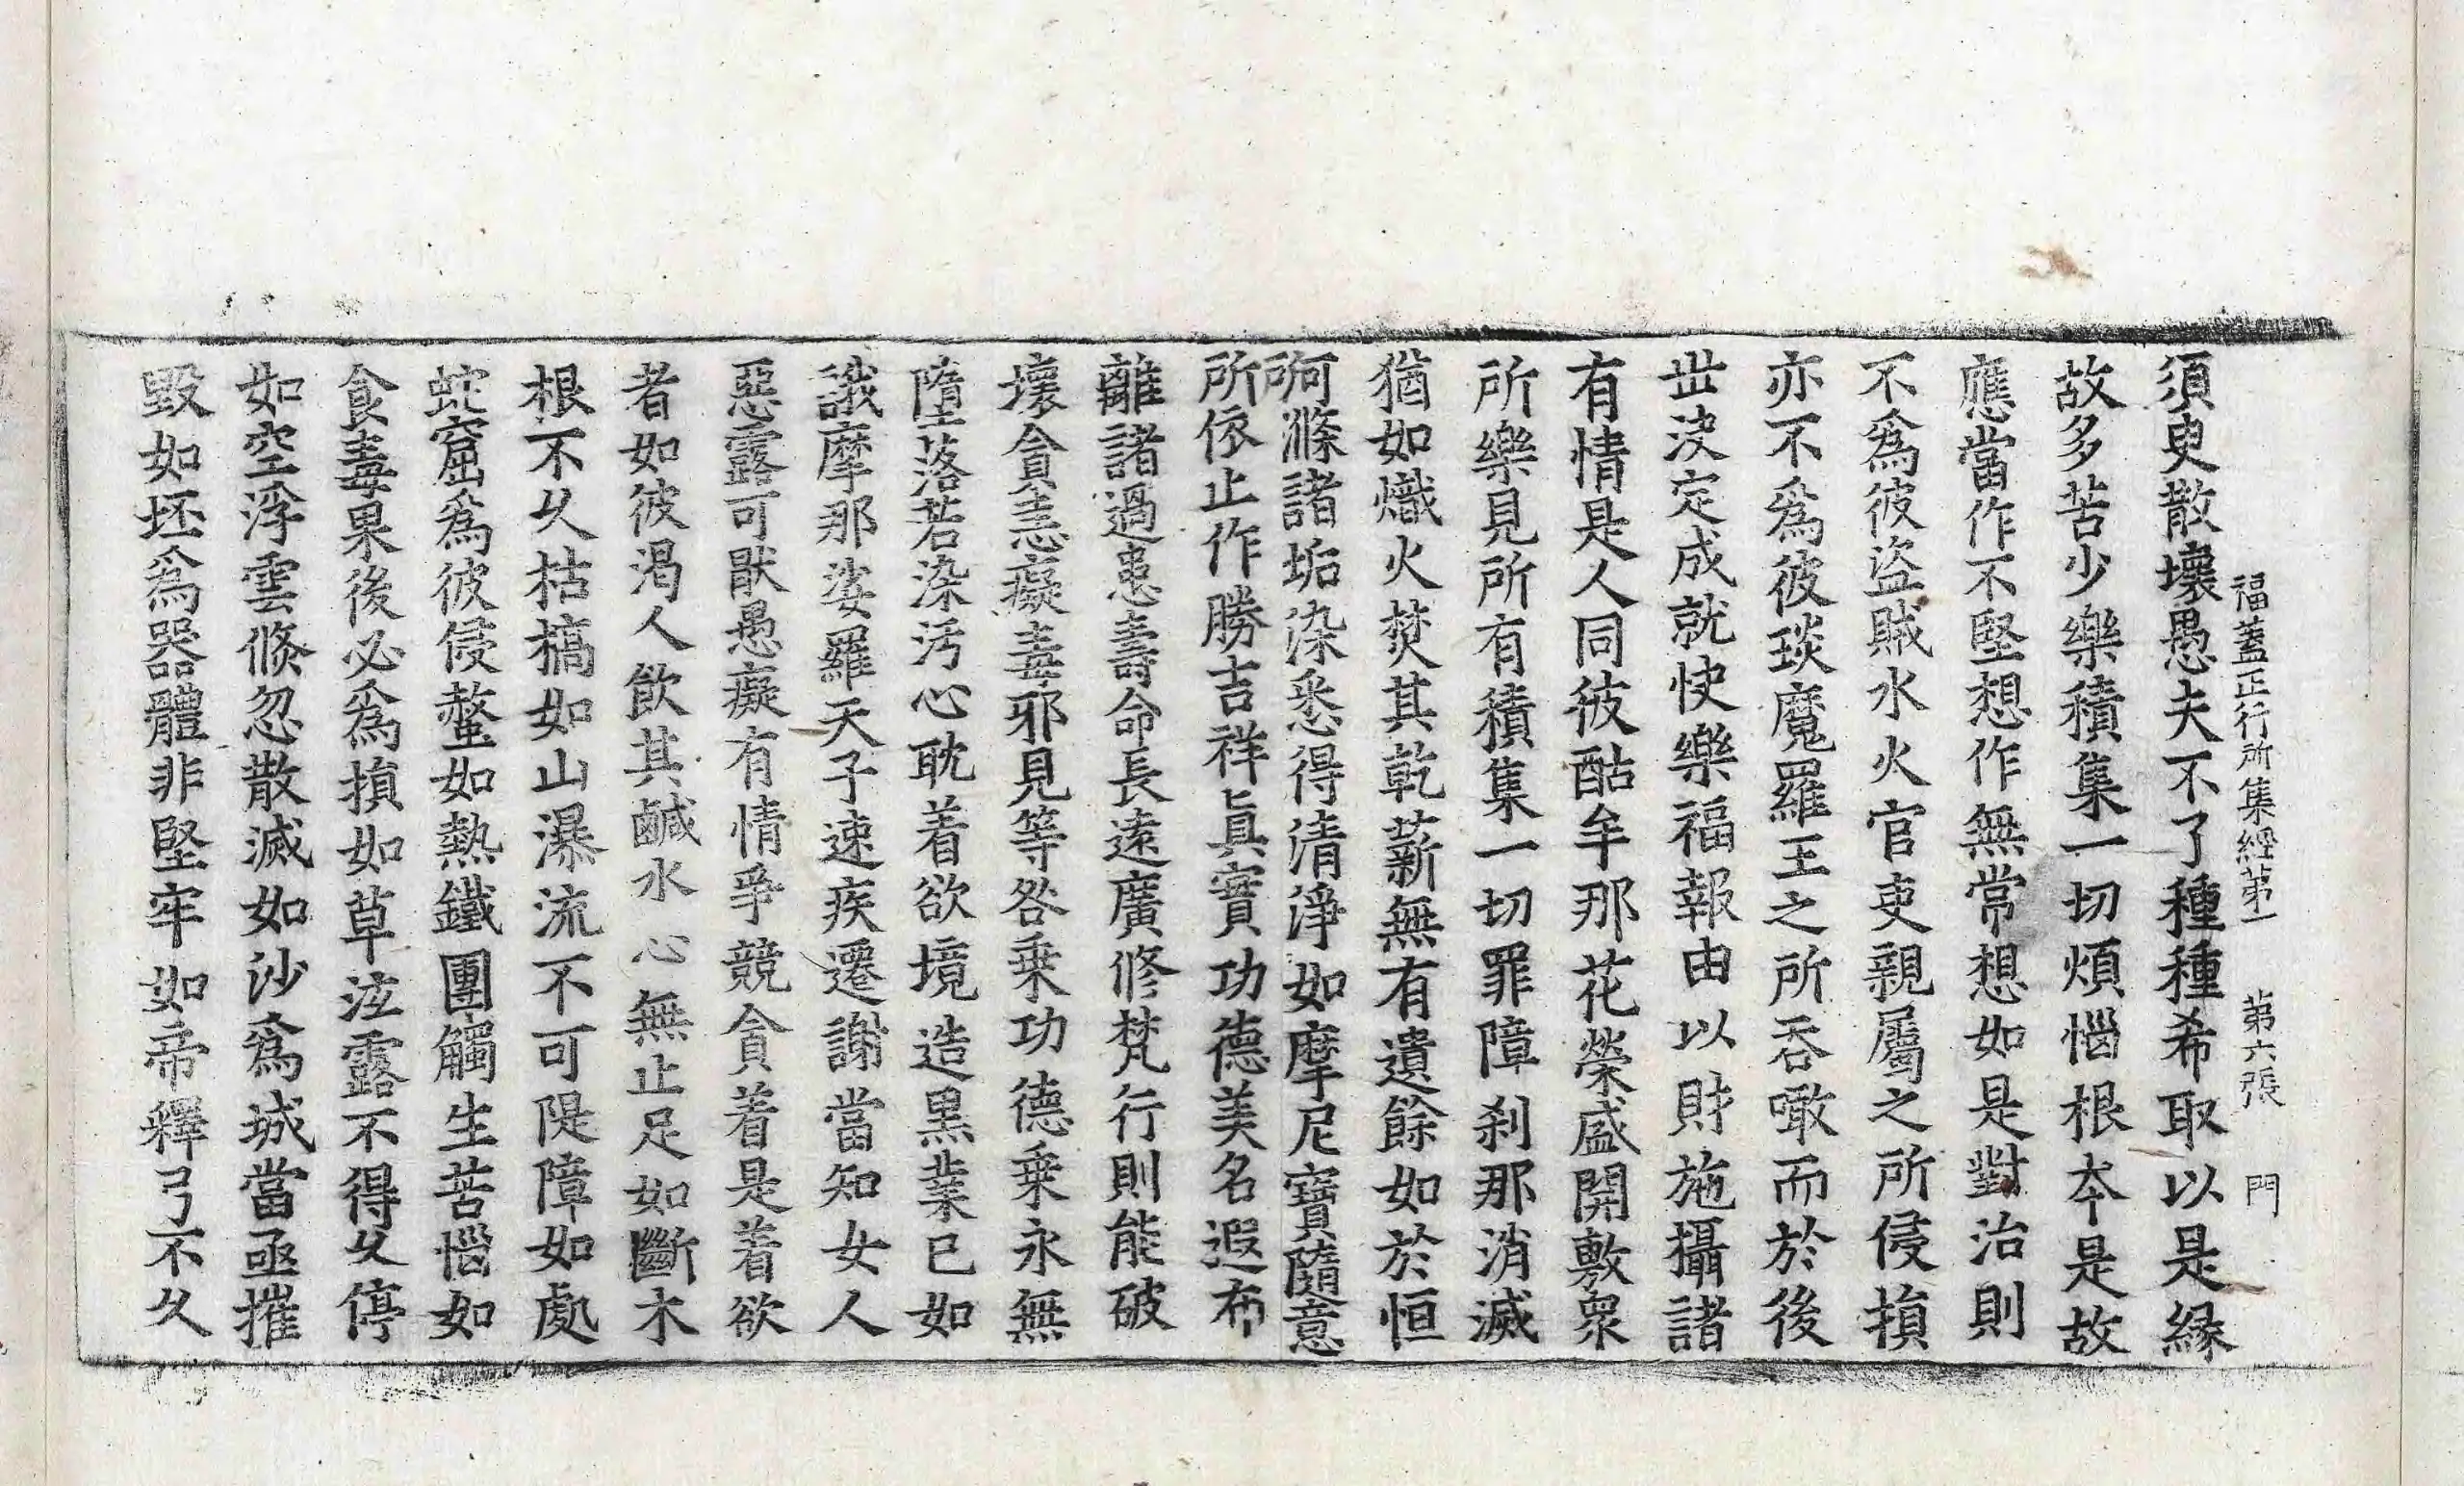 福蓋正行所集經第一　第六張　門
須臾散壞愚夫不了種種希取以是緣
故多苦少樂積集一切煩惱根本是故
應當作不堅想作無常想如是對治則
不爲彼盜賊水火官吏親屬之所侵損
亦不爲彼琰魔羅王之所吞噉而於後
世決定成就快樂福報由以財施攝諸
有情是人同彼酤牟那花榮盛開敷衆
所樂見所有積集一切罪障刹那消滅
猶如熾火焚其乾薪無有遺餘如於恒
河滌諸垢染悉得清淨如摩尼寶隨意
所依止作勝吉祥眞實功德美名遐布
離諸過患壽命長遠廣修梵行則能破
壞貪恚癡毒邪見等咎乘功德乘永無
墮落若染污心耽着欲境造黑業已如
誐摩那娑羅天子速疾遷謝當知女人
惡露可猒愚癡有情爭競貪着是着欲
者如彼渴人飲其鹹水心無止足如斷木
根不久枯槁如山瀑流不可隄障如處
蛇窟爲彼侵螫如熱鐵團觸生苦惱如
食毒果後必爲損如草泫露不得久停
如空浮雲倏忽散滅如沙爲城當亟摧
毀如坯爲器體非堅牢如帝釋弓不久